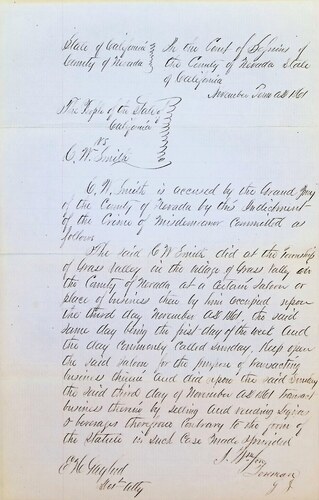 State of California
County of Nevada
In the Court of Sessions of
the County of Nevada State
of California
November Term AD 1861
The People of the State of
California
vs
C. W. Smith
C. W. Smith is accused by the Grand Jury
of the County of Nevada by this Indictment
of the Crime of Misdemeanor committed as
follows
The said C W Smith did at the township
of Grass Valley in the village of Grass Valley in
the County of Nevada, at a certain saloon or
place of business then by him occupied upon
the third day November AD 1861, the said
same day being the first day of the week and
the day commonly called Sunday, Keep open
the said saloon for the purpose of transacting
business therein and did upon the said Sunday
the said third day of November AD 1861 transact
business therein by selling and vending
beverages therefrom contrary to the form of
the Statute in such case made & provided
Foreman
G J
Dist Atty